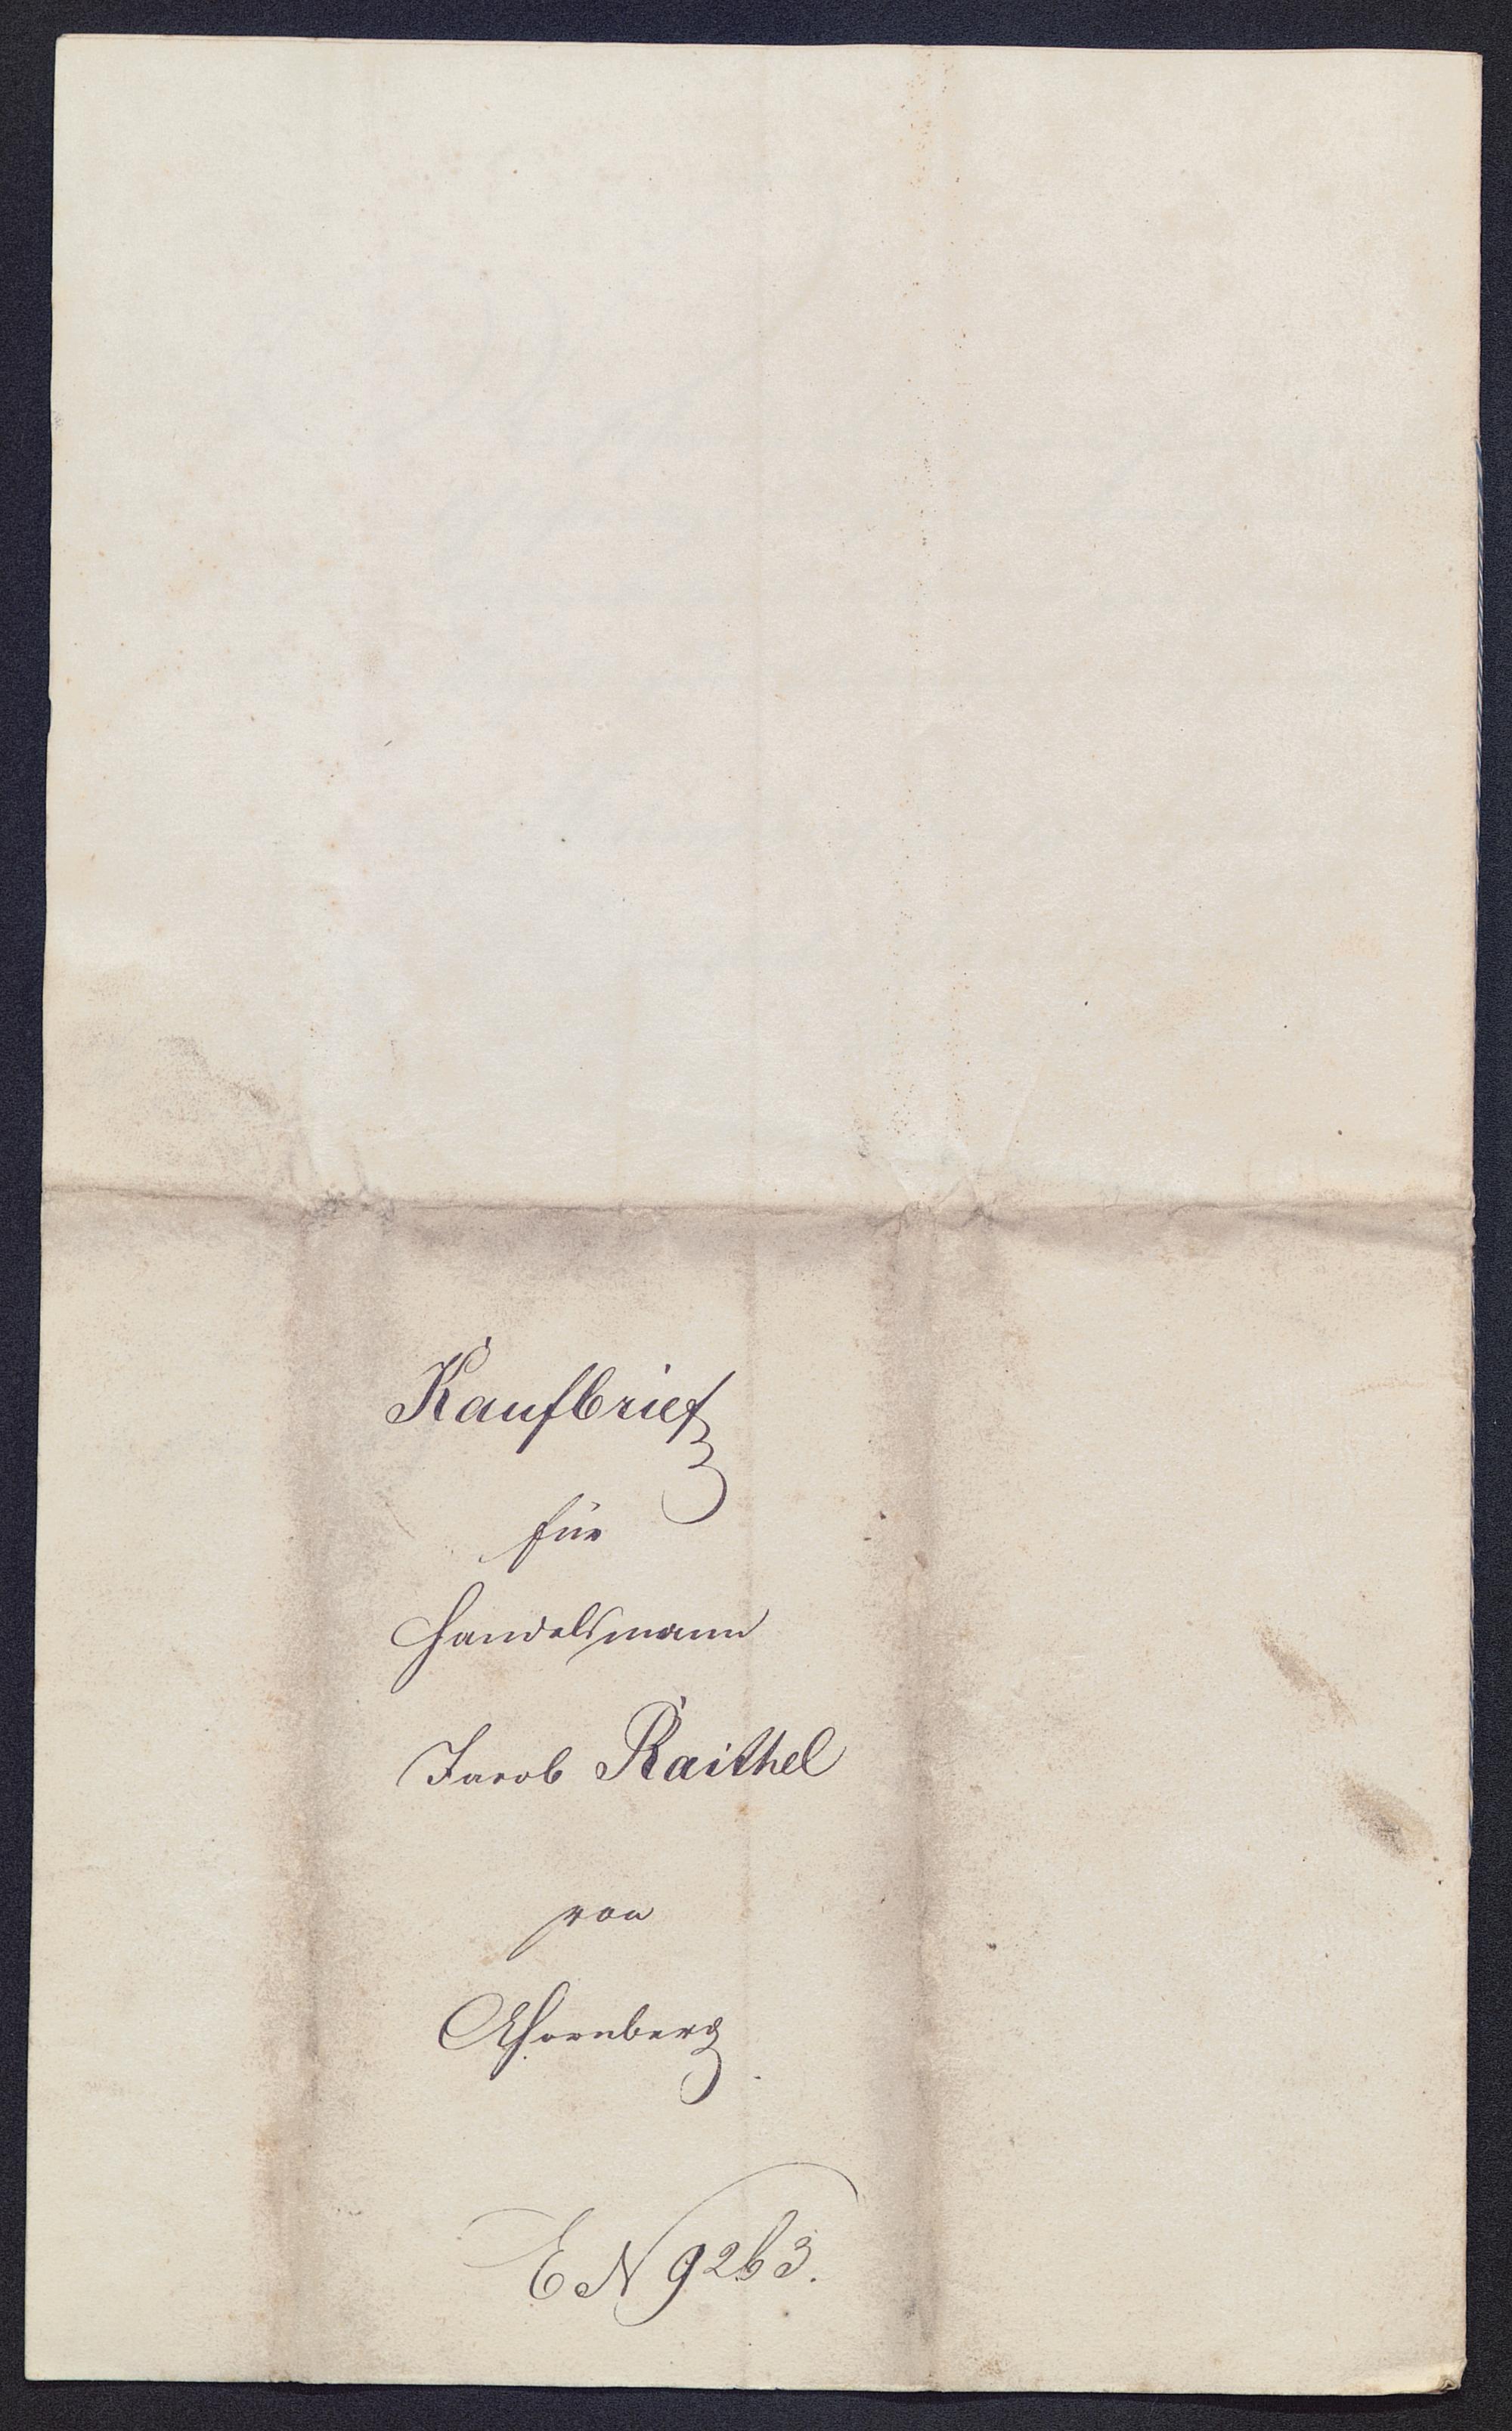 Kaufbrief
für
Handelsmann
Jacob Raithel
von
Ahornberg
E N 9263.